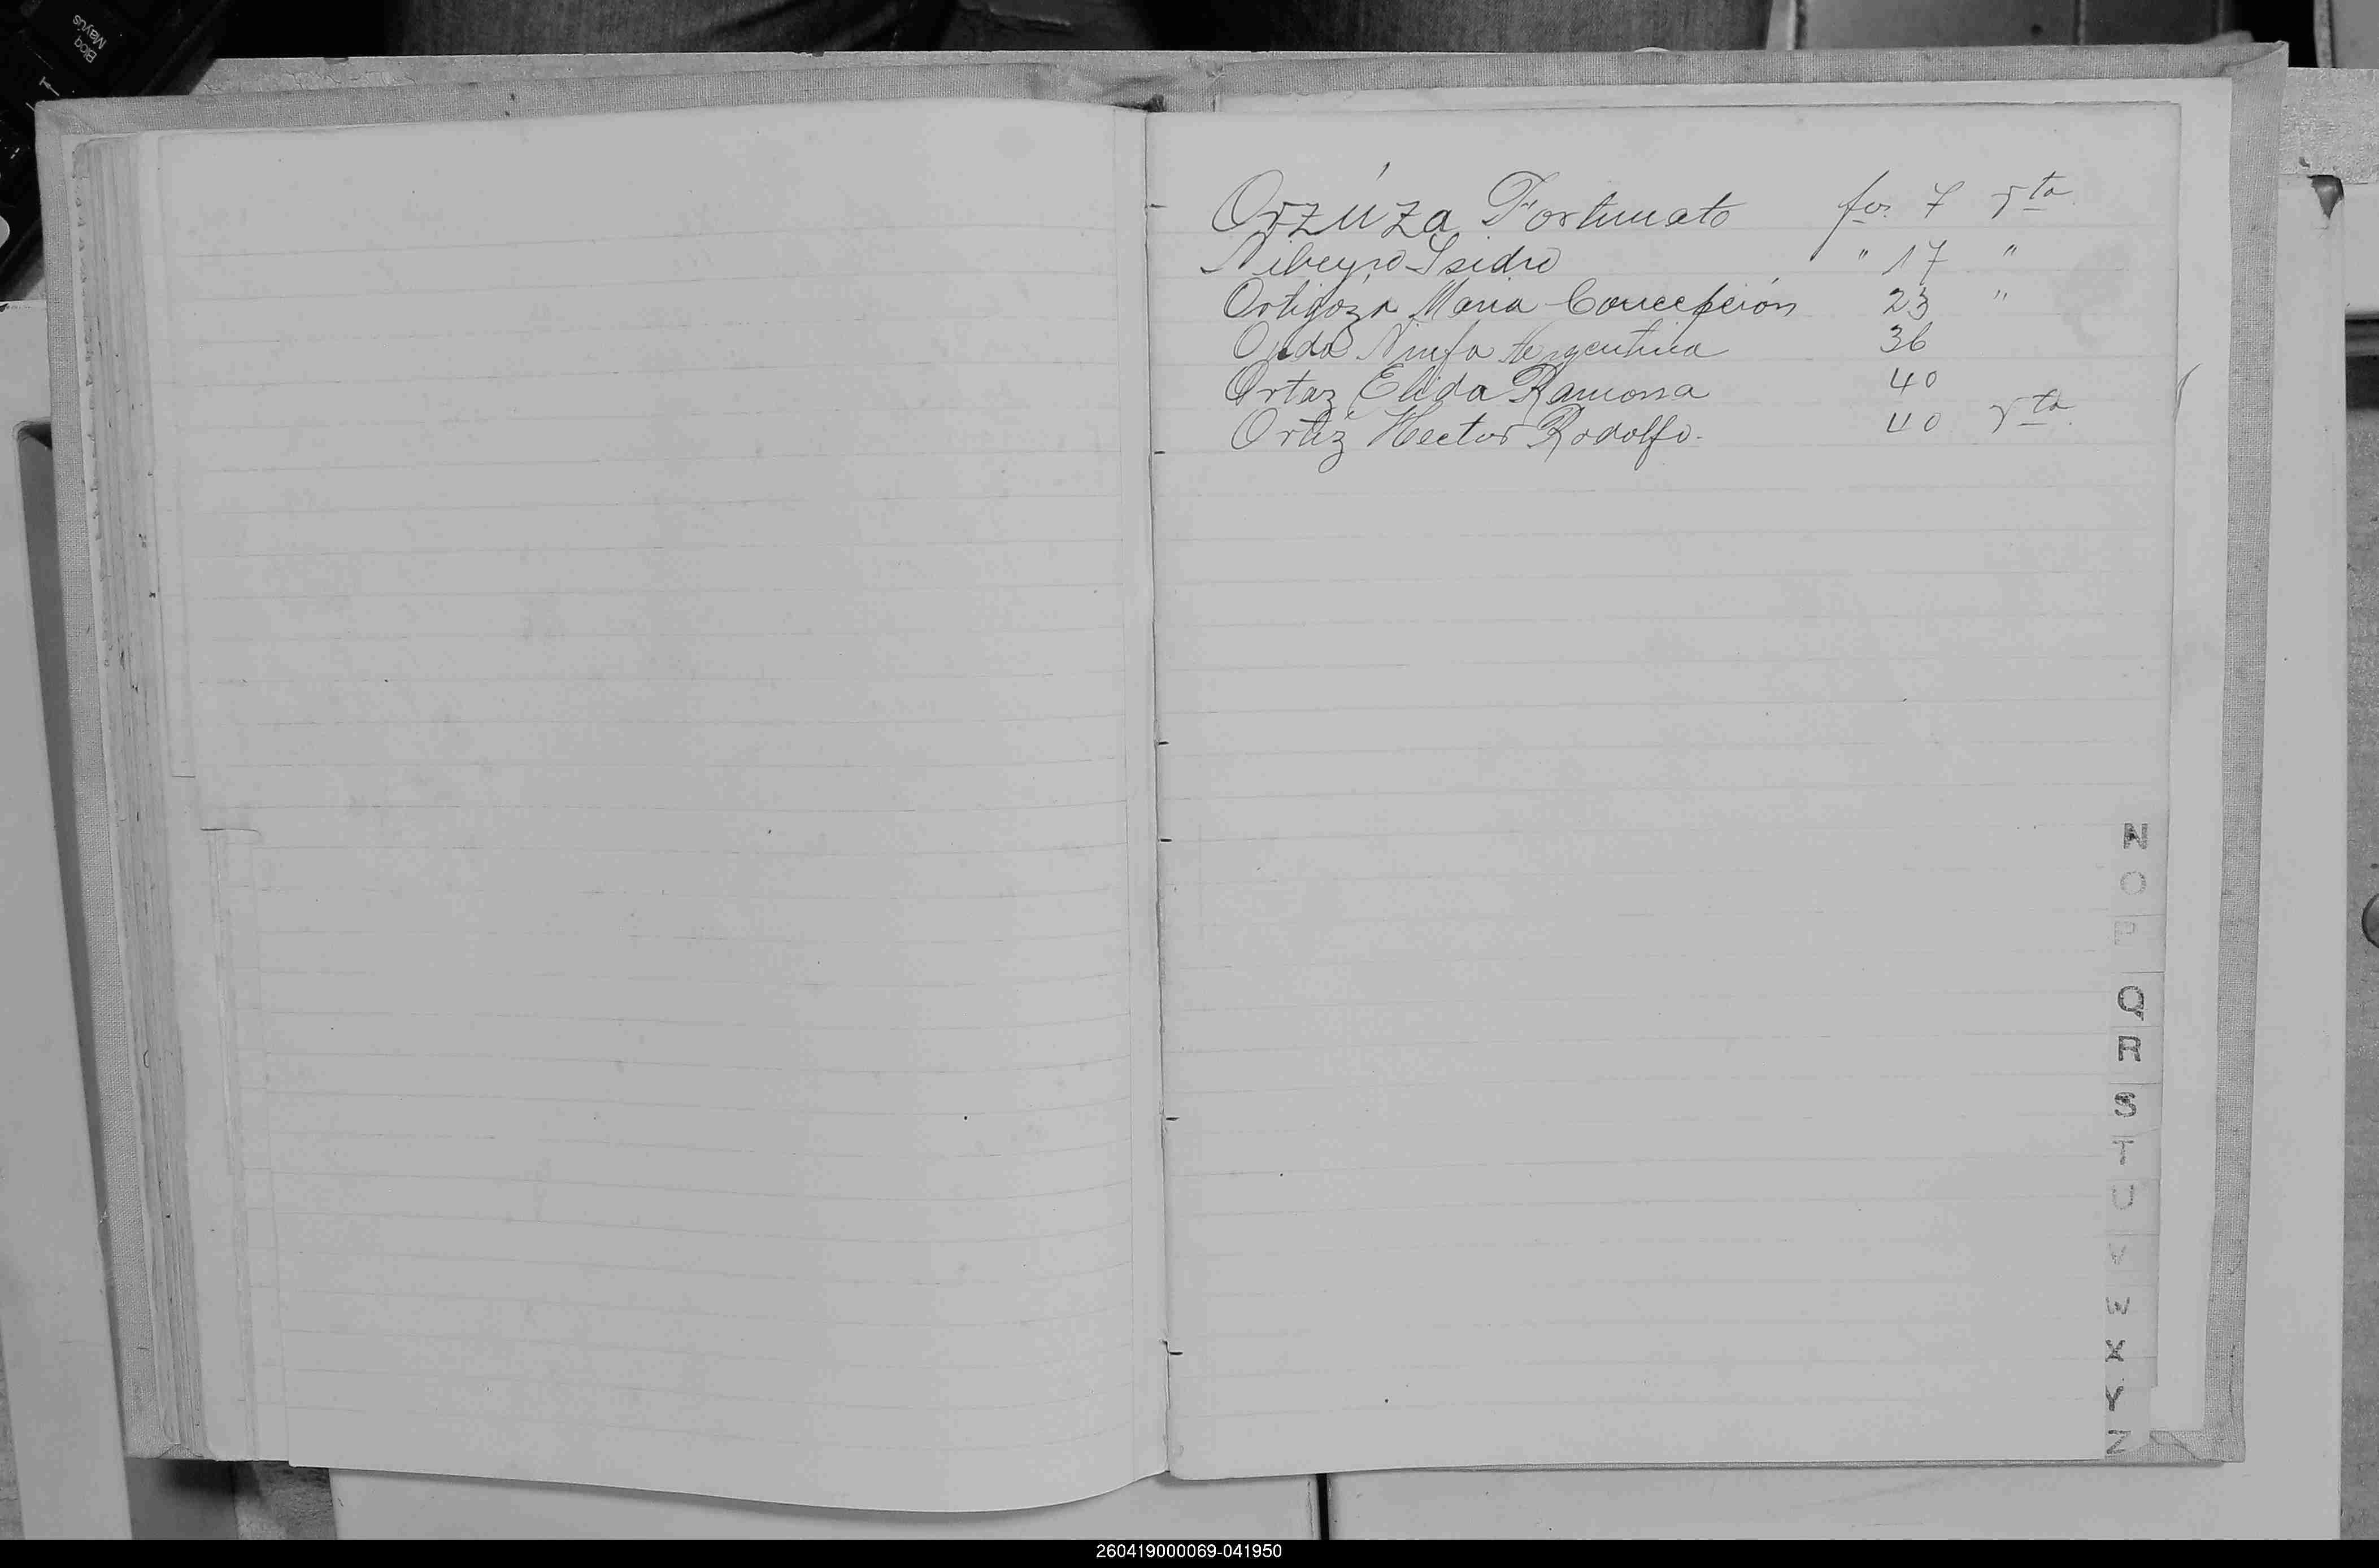 Bloq
Mayús
Orzúza Fortunato fos. 7 vta
Nibeyro Isidro " 17 "
Ortigóza Maria Concepción 23 "
Ninfa Argentina 36
Ortaz Elida Ramona 40
Ortíz Hector Rodolfo. 40 vta.
N
O
P
Q
R
S
T
U
V
W
X
Y
Z
260419000069-041950